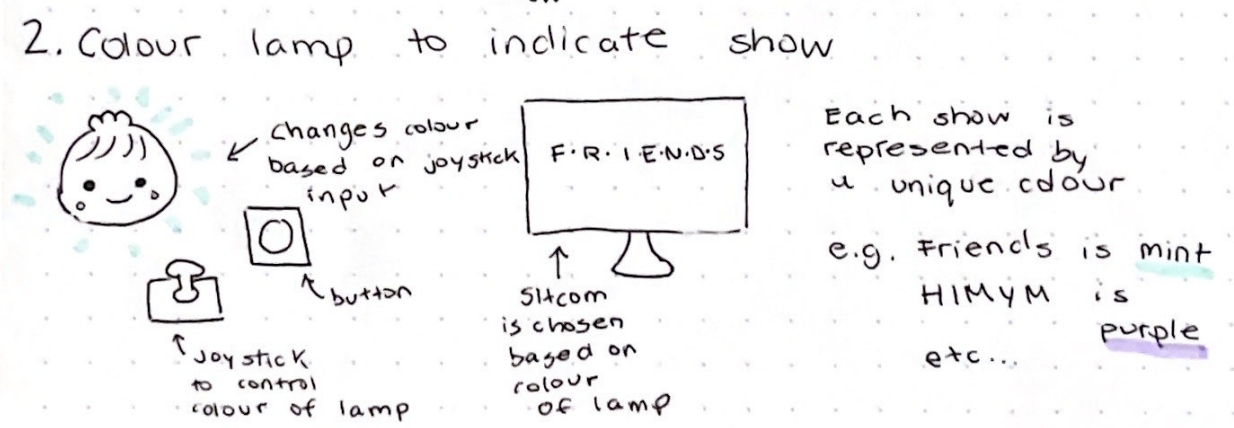 2. Colour lamp to indicate show
changes colour
based on joystick
input
button
Joystick
to control
colour of lamp
F·R·I·E·N·D·S
Sitcom
is chosen
based on
colour
of lamp
Each show is
represented by
a unique colour
e.g. Friends is mint
HIMYM is
purple
etc...